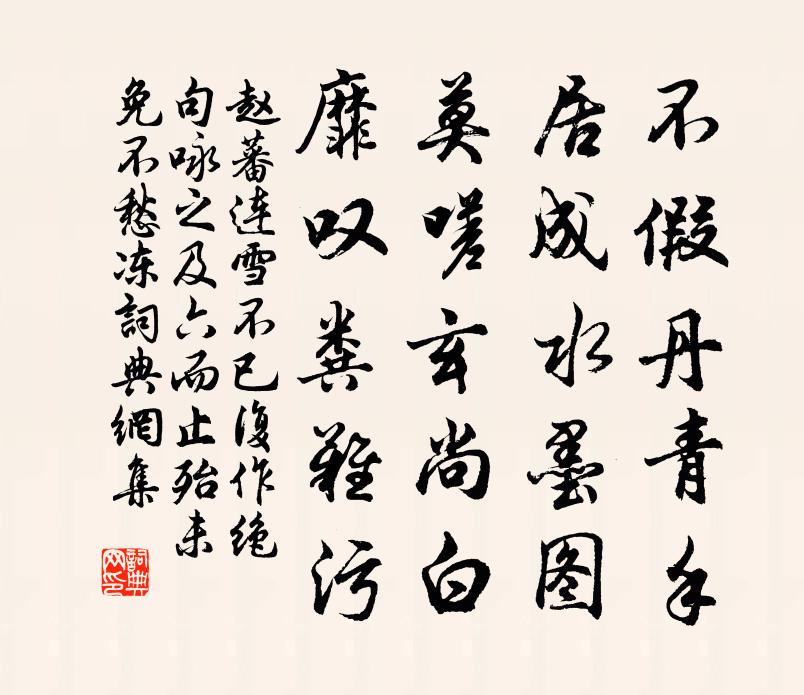 不假丹青手
居成水墨图
莫嗟玄尚白
靡叹粪难污
赵蕃连雪不已复作绝
句咏之及六而止殆未
免不愁冻詞典網集
詞典
网印